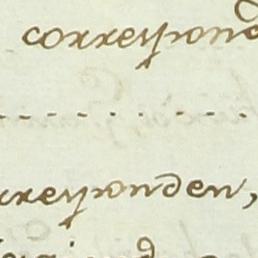 correspond
rresponden,